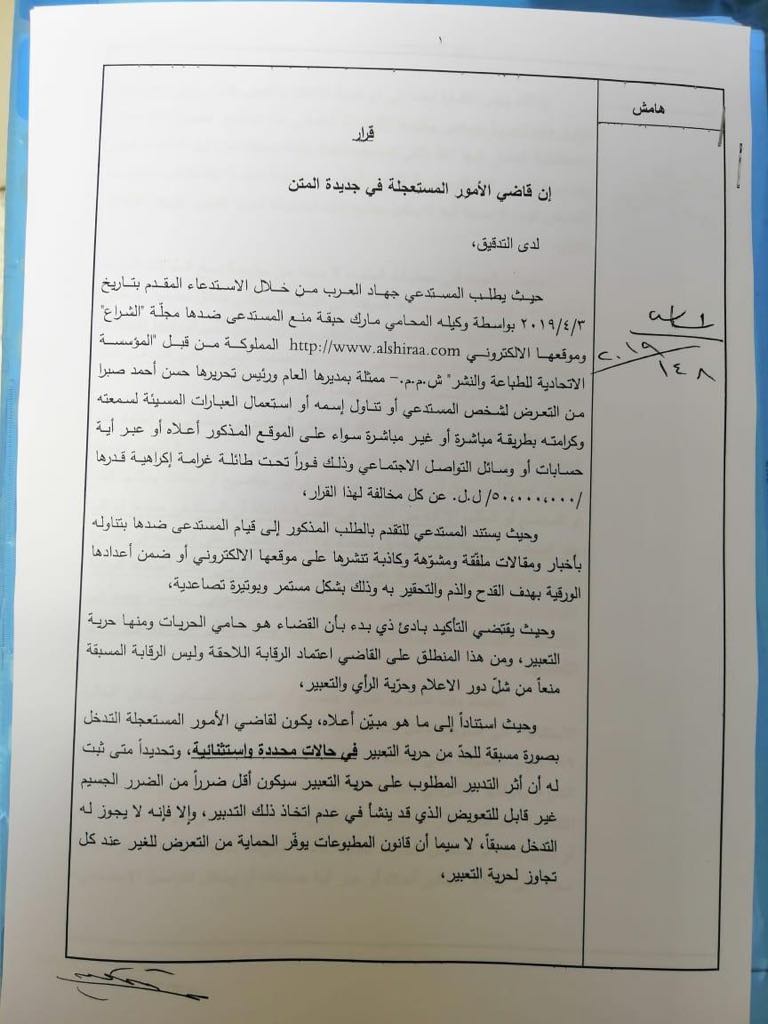 ١
هامش
قرار
إن قاضي الأمور المستعجلة في جديدة المتن
لدى التدقيق،
حيث يطلب المستدعي جهاد العرب من خلال الاستدعاء المقدم بتاريخ
٢٠١٩/٤/٣ بواسطة وكيله المحامي مارك حبقة منع المستدعى ضدها مجلّة "الشراع"
وموقعها الالكتروني http://www.alshiraa.com المملوكة من قبل "المؤسسة
الاتحادية للطباعة والنشر" ش.م.م.– ممثلة بمديرها العام ورئيس تحريرها حسن أحمد صبرا
من التعرض لشخص المستدعي أو تناول إسمه أو استعمال العبارات المسيئة لسمعته
وكرامته بطريقة مباشرة أو غير مباشرة سواء على الموقع المذكور أعلاه أو عبر أية
حسابات أو وسائل التواصل الاجتماعي وذلك فوراً تحت طائلة غرامة إكراهية قدرها
/٥٠،٠٠٠،٠٠٠/ ل.ل. عن كل مخالفة لهذا القرار،
وحيث يستند المستدعي للتقدم بالطلب المذكور إلى قيام المستدعى ضدها بتناوله
بأخبار ومقالات ملفّقة ومشوّهة وكاذبة تنشرها على موقعها الالكتروني أو ضمن أعدادها
الورقية بهدف القدح والذم والتحقير به وذلك بشكل مستمر وبوتيرة تصاعدية،
وحيث يقتضي التأكيد بادئ ذي بدء بأن القضاء هو حامي الحريات ومنها حرية
التعبير، ومن هذا المنطلق على القاضي اعتماد الرقابة اللاحقة وليس الرقابة المسبقة
منعاً من شلّ دور الاعلام وحرّية الرأي والتعبير،
وحيث استناداً إلى ما هو مبيّن أعلاه، يكون لقاضي الأمور المستعجلة التدخل
بصورة مسبقة للحدّ من حرية التعبير في حالات محددة واستثنائية، وتحديداً متى ثبت
له أن أثر التدبير المطلوب على حرية التعبير سيكون أقل ضرراً من الضرر الجسيم
غير قابل للتعويض الذي قد ينشأ في عدم اتخاذ ذلك التدبير، وإلا فإنه لا يجوز له
التدخل مسبقاً، لا سيما أن قانون المطبوعات يوفّر الحماية من التعرض للغير عند كل
تجاوز لحرية التعبير،
٢٠١٩
١٤٨